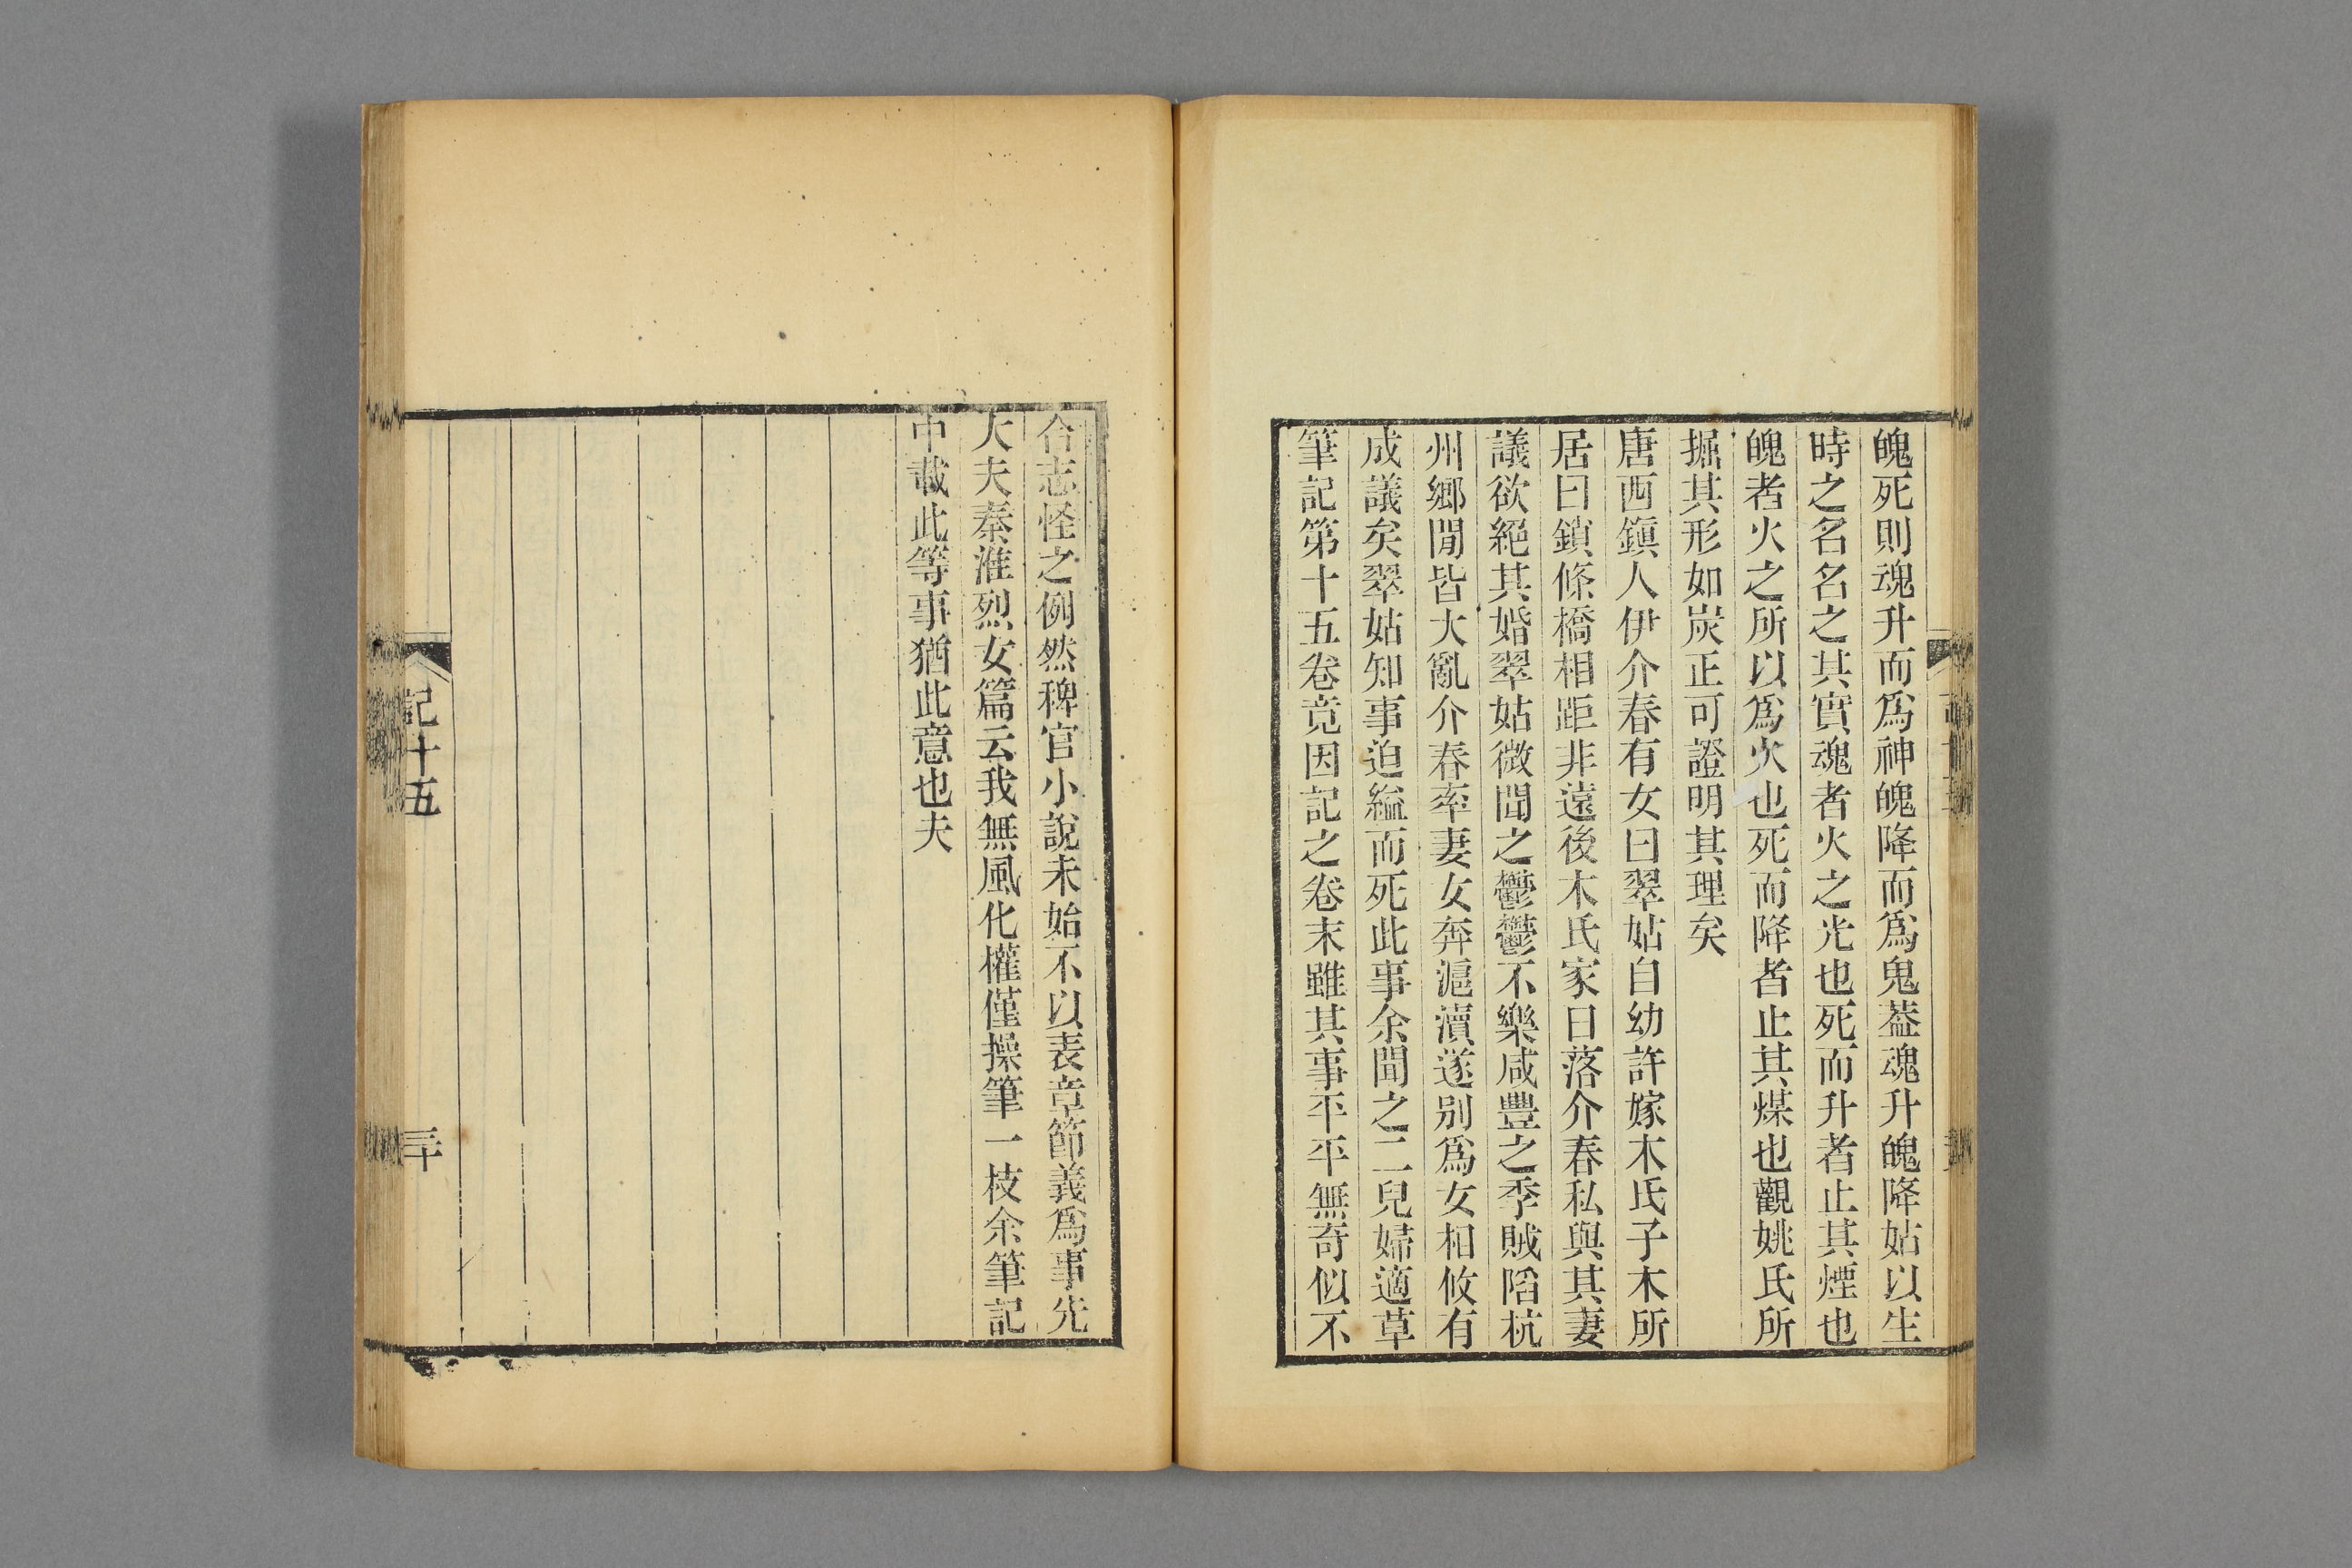 魄死則魂升而爲神魄降而爲鬼葢魂升魄降姑以生
時之名名之其實魂者火之光也死而升者止其煙也
魄者火之所以爲火也死而降者止其煤也觀姚氏所
掘其形如炭正可證明其理矣
唐西鎭人伊介春有女曰翠姑自幼許嫁木氏子木所
居曰鎖條橋相距非遠後木氏家日落介春私與其妻
議欲絕其婚翠姑微聞之鬱鬱不樂咸豐之季賊陷杭
州鄉閒皆大亂介春率妻女奔滬瀆遂別爲女相攸有
成議矣翠姑知事迫縊而死此事余聞之二兒婦適草
筆記第十五卷竟因記之卷末雖其事平平無奇似不
合志怪之例然稗官小說未始不以表章節義爲事先
大夫秦淮烈女篇云我無風化權僅操筆一枝余筆記
中載此等事猶此意也夫
記十五
三十